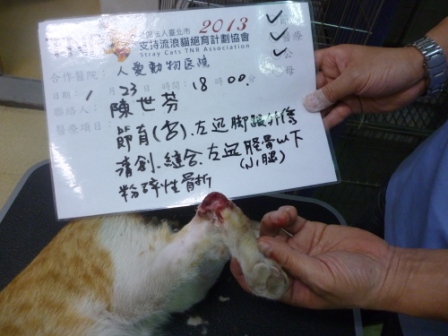 2013
支持流浪貓絕育計劃協會
Stray Cats TNR Association
合作醫院：人愛動物医院
日期：1月23 時間：18:00
聯絡人：陳世芬
醫療項目：節育(公)、左后脚踝外傷
清創、縫合、左后脛骨以下
(小腿)
粉碎性骨折
醫療
公
母